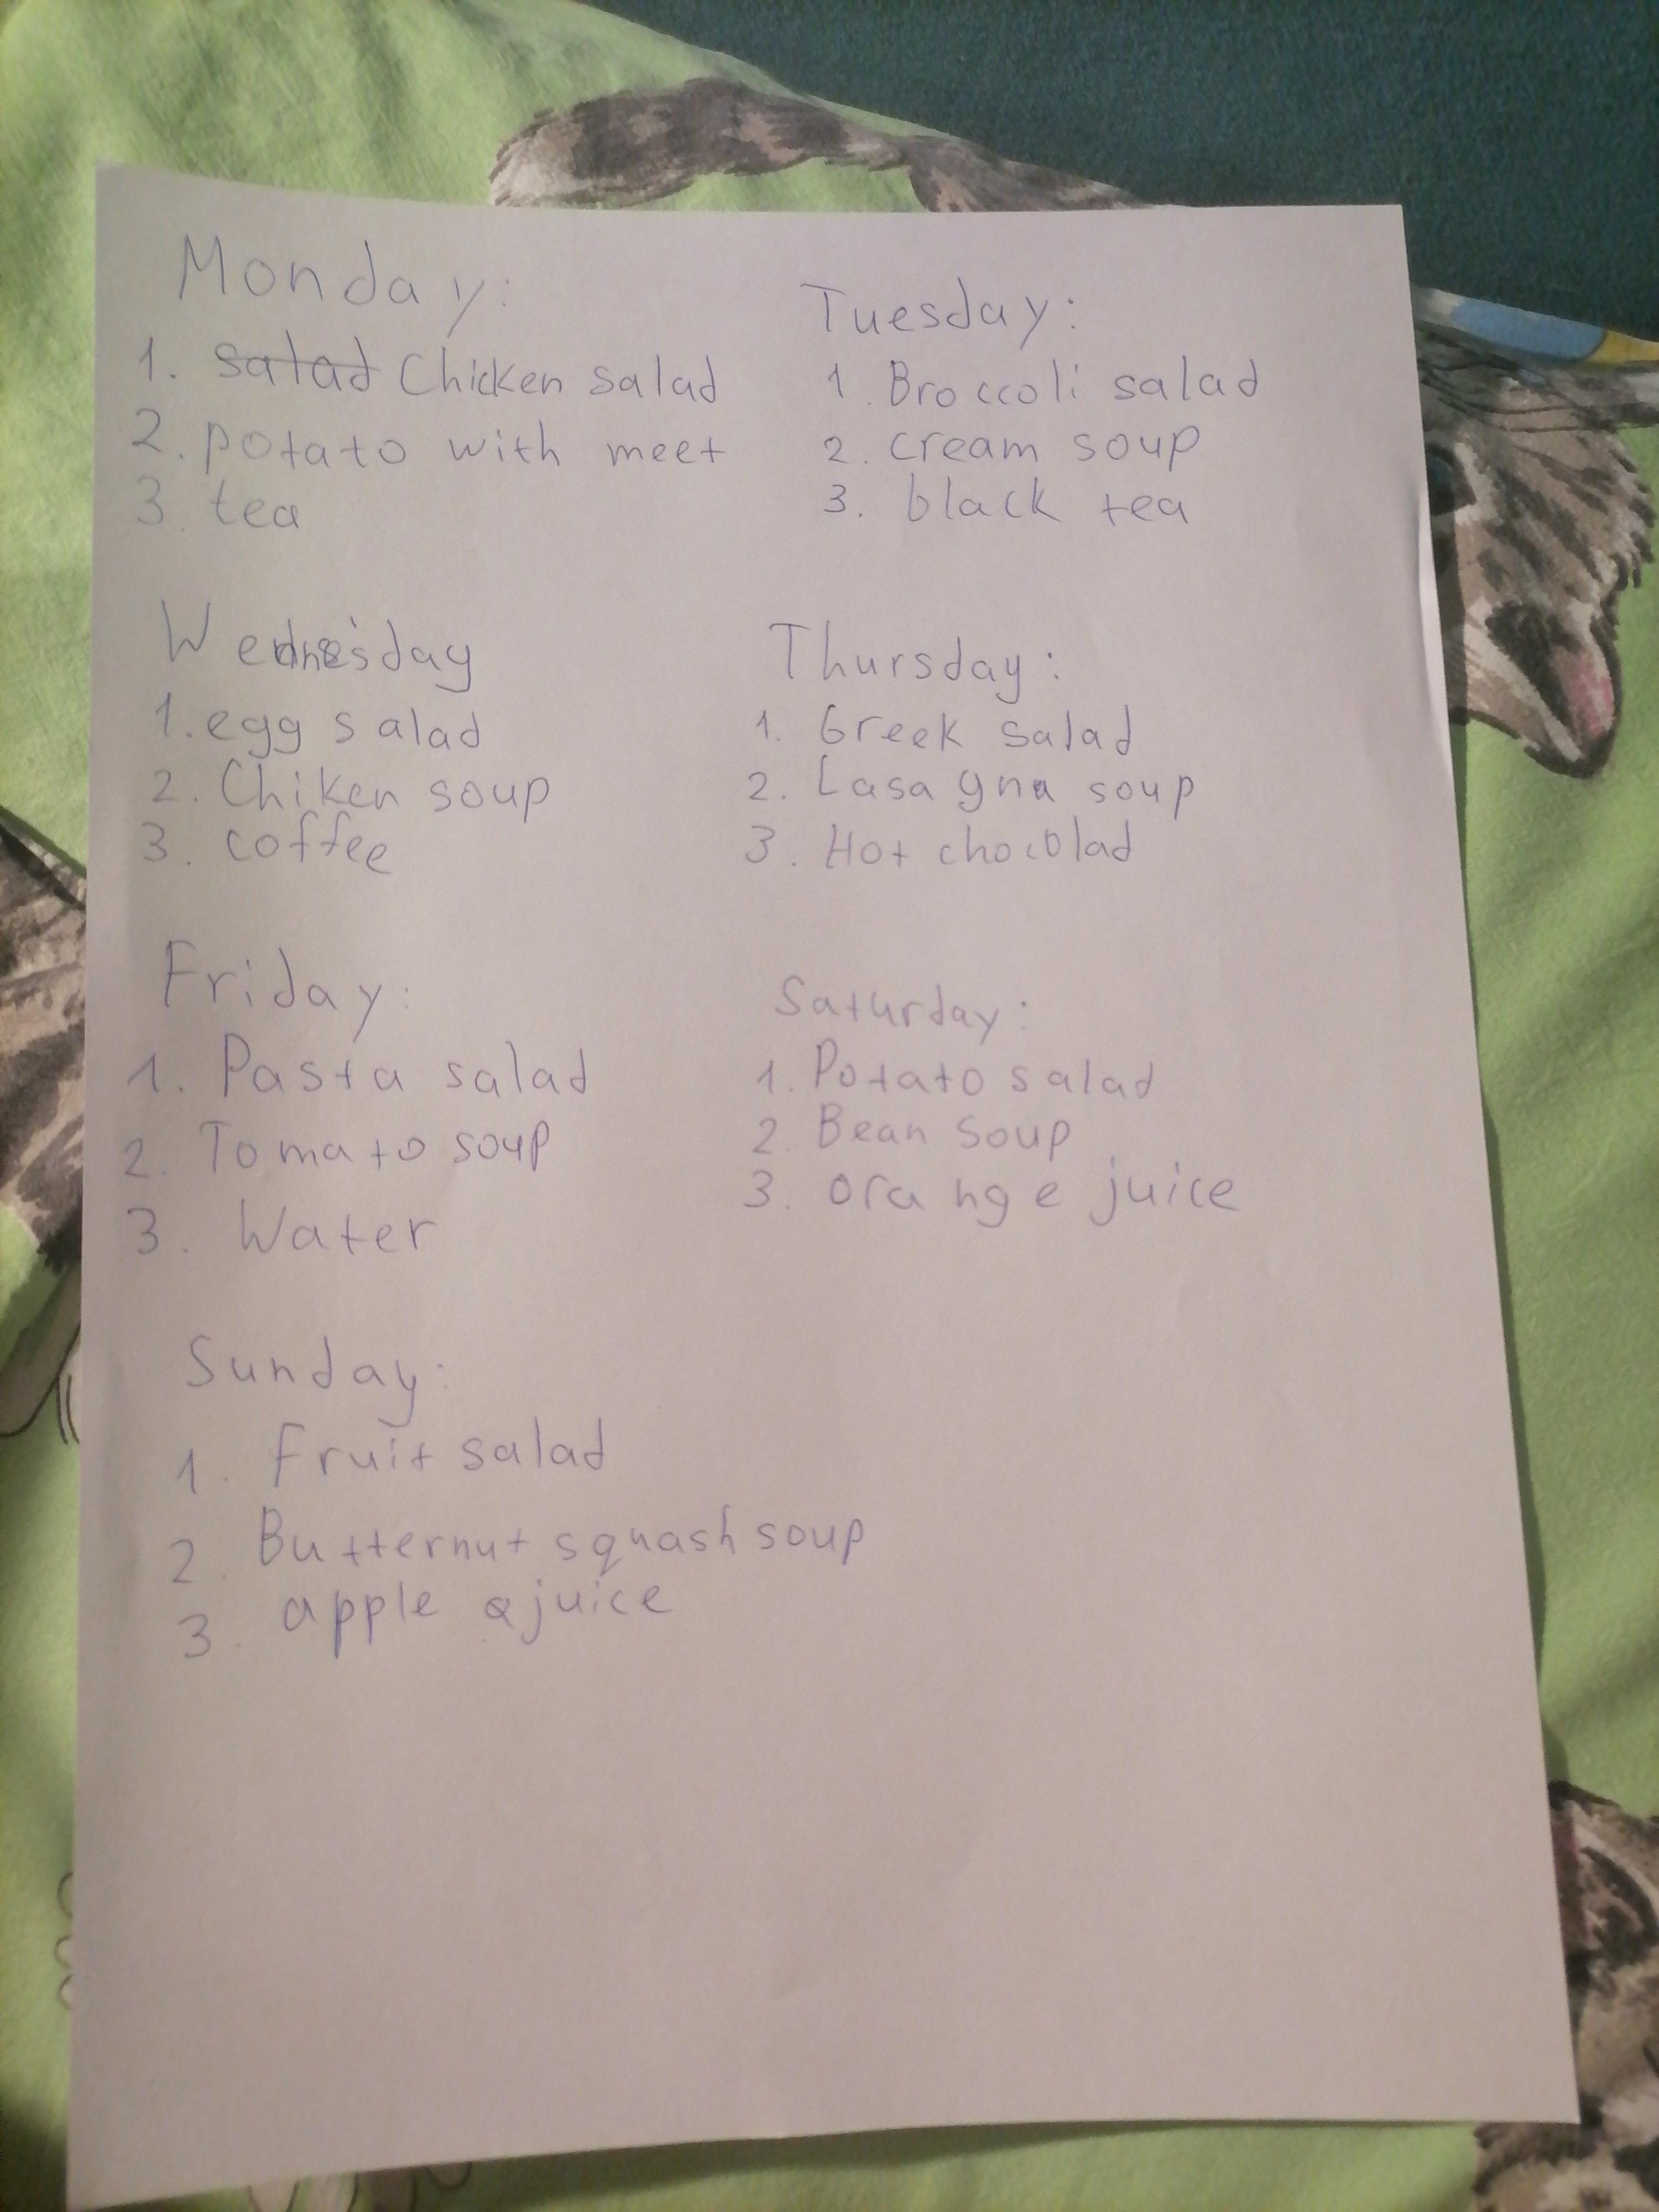 Monday:
1. salad Chicken salad
2. potato with meet
3 tea
Tuesday:
1. Broccoli salad
2. cream soup
3. black tea
Wednesday
1. egg salad
2. Chiken soup
3. coffee
Thursday:
1. Greek salad
2. Lasagna soup
3. Hot chocolad
Friday:
1. Pasta salad
2. Tomato soup
3. Water
Saturday:
1. Potato salad
2. Bean soup
3. orange juice
Sunday:
1. Fruit salad
2. Butternut squash soup
3. apple juice